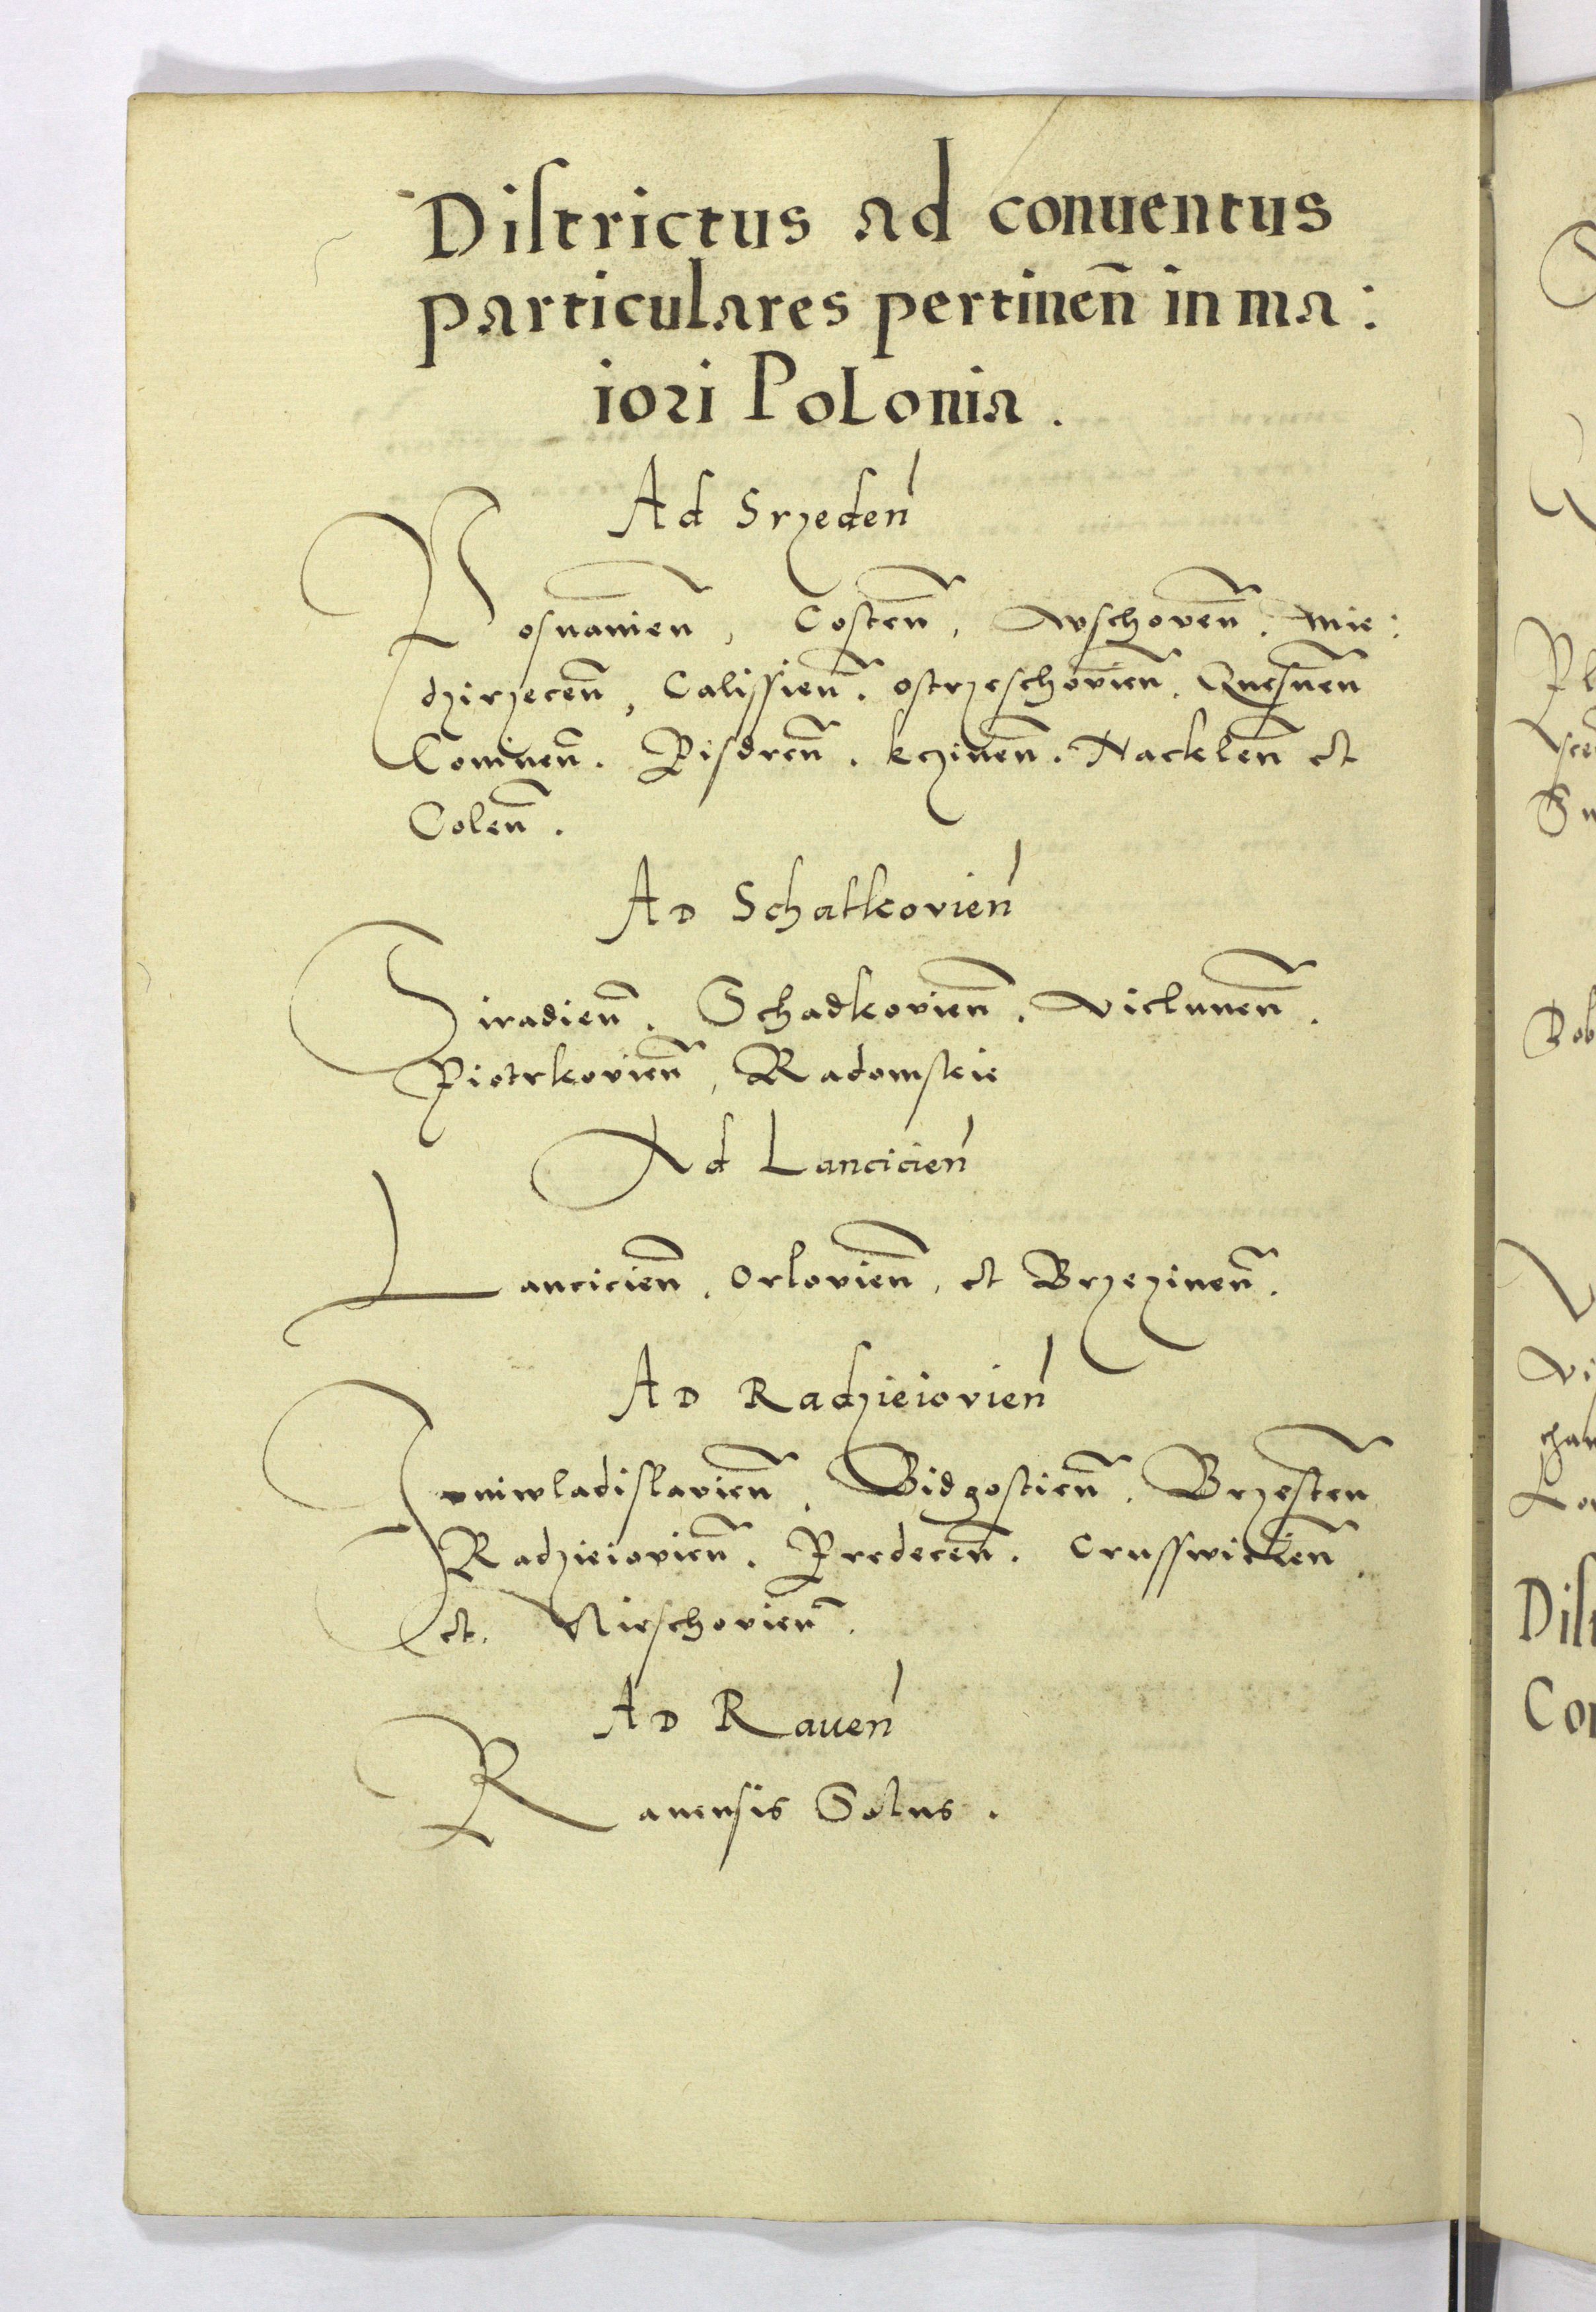 Districtus ad conuentus
particulares pertinen̄ in ma:
iori Polonia.
Ad Srzeden
Posnanien̄, Costen̄, Wschoven̄. Mie:
dzirzecen̄, Calissien̄. ostrzeschovien̄. Gnesnen̄
Coninen̄. Pisdren̄. kczinen̄. Nacklen̄ et
Colen̄.
Ad Schatkovien
Siradien̄. Schadkovien̄. Vielunen̄.
Piotrkovien̄, Radomskie
Ad Lancicien
Lancicien̄. Orlovien̄, et Brzezinen̄.
Ad Radzieiovien
Juniwladislavien̄. Bidgostien̄. Brzesten̄
Radzieiovien̄. Predecen̄. Crusswicien̄.
et. Nieschovien̄.
Ad Rauen
Rauensis Solus.